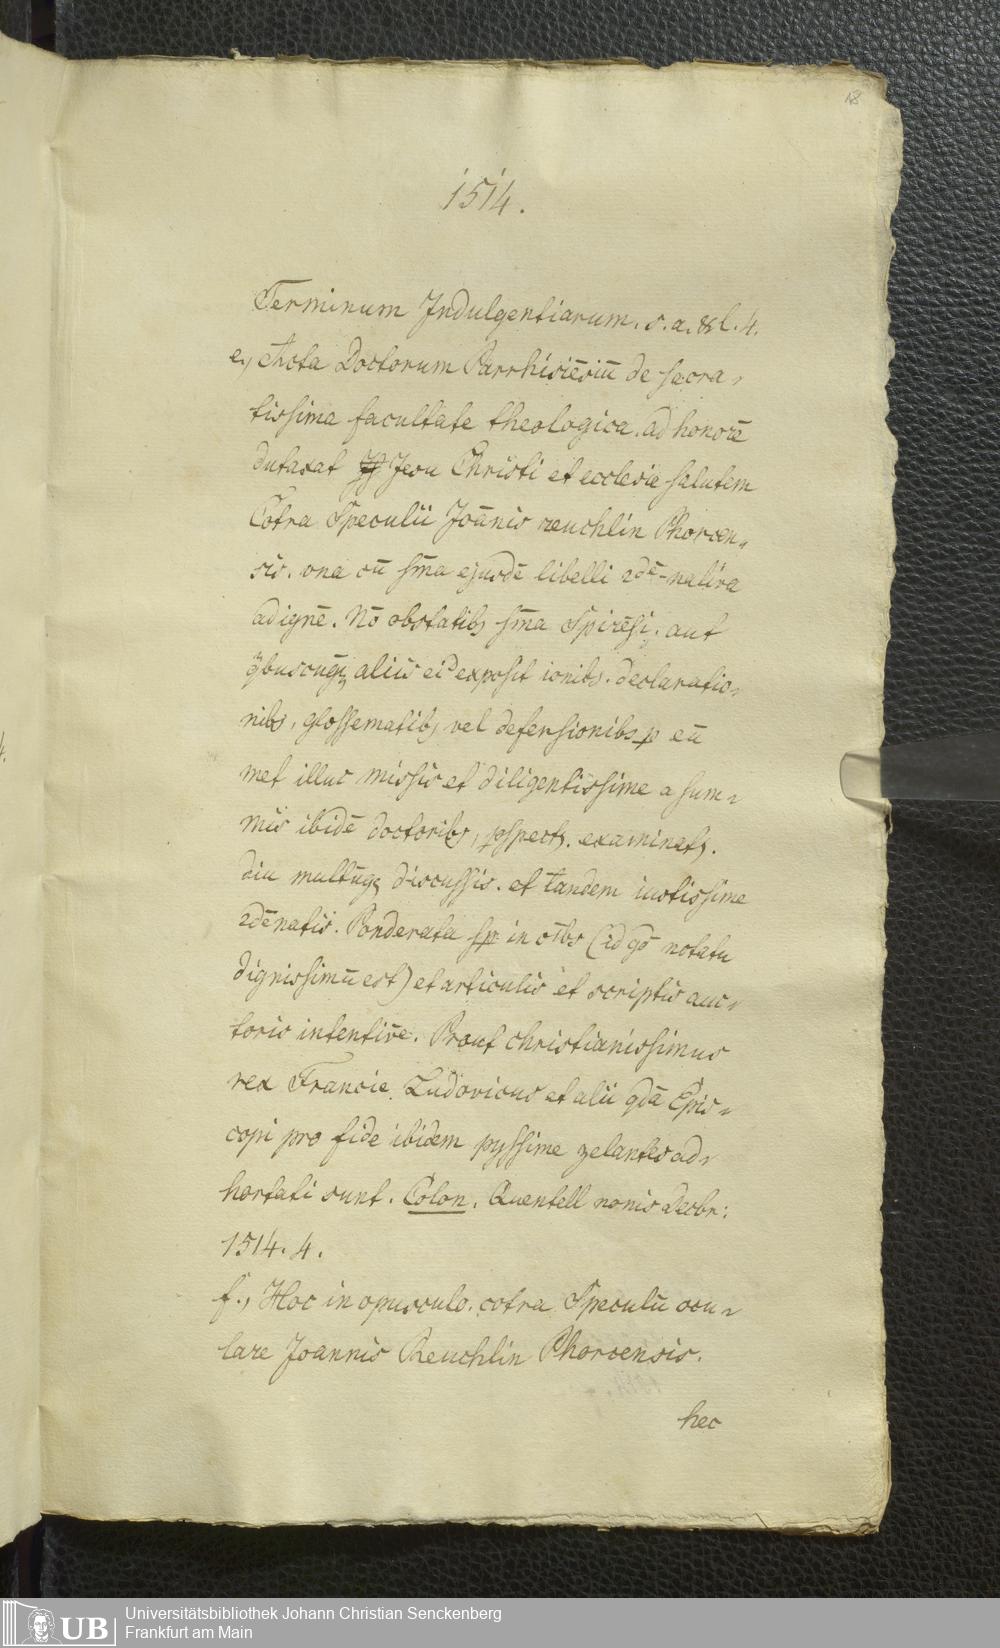 18
1514.
Terminum Indulgentiarum. s. a. & l. 4.
e., Acta Doctorum Parrhisiēsiū de sacra-
tissima facultate theologica. ad honorē
dutaxat Jesu Christi et ecclesie salutem
Cōtra Speculū Joānis reuchlin Phorcen-
sis. vna cū sīna ejusdē libelli 2dē-natiua
ad ignē. Nō obstātibꝫ sīna Spirēsi. aut
qbuscūqꝫ aliis eiꝰ exposit ionibꝫ. declaratio-
nibꝫ, glossematibꝫ vel defensionibꝫ p eū
met illuc missis et diligentissime a sum-
mis ibidē doctoribꝫ, pspectꝭ. examinatꝭ.
diu multūqꝫ discussis. et tandem iustissime
2dēnatis. Ponderata in oībꝫ (id qd notatu
dignissimū est) et articulis et scriptis auc-
toris intentiōe. Prout christianissimus
rex Francie Ludovicus et alii qdā Epis-
copi pro fide ibidem pyssime zelantes ad-
hortati sunt. Colon. Quentell nonis Decbr:
1514. 4.
f., Hoc in opusculo. cōtra Speculū ocu-
lare Joannis Reuchlin Phorcensis.
hec
4.
UB
Universitätsbibliothek Johann Christian Senckenberg
Frankfurt am Main